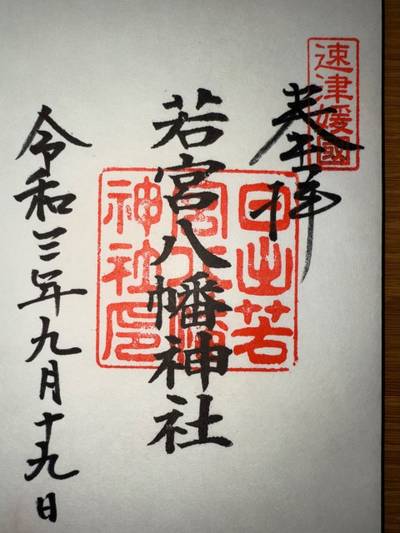 速津媛國
奉拝
若宮八幡神社
日出若
宮八幡
神社印
令和三年九月十九日